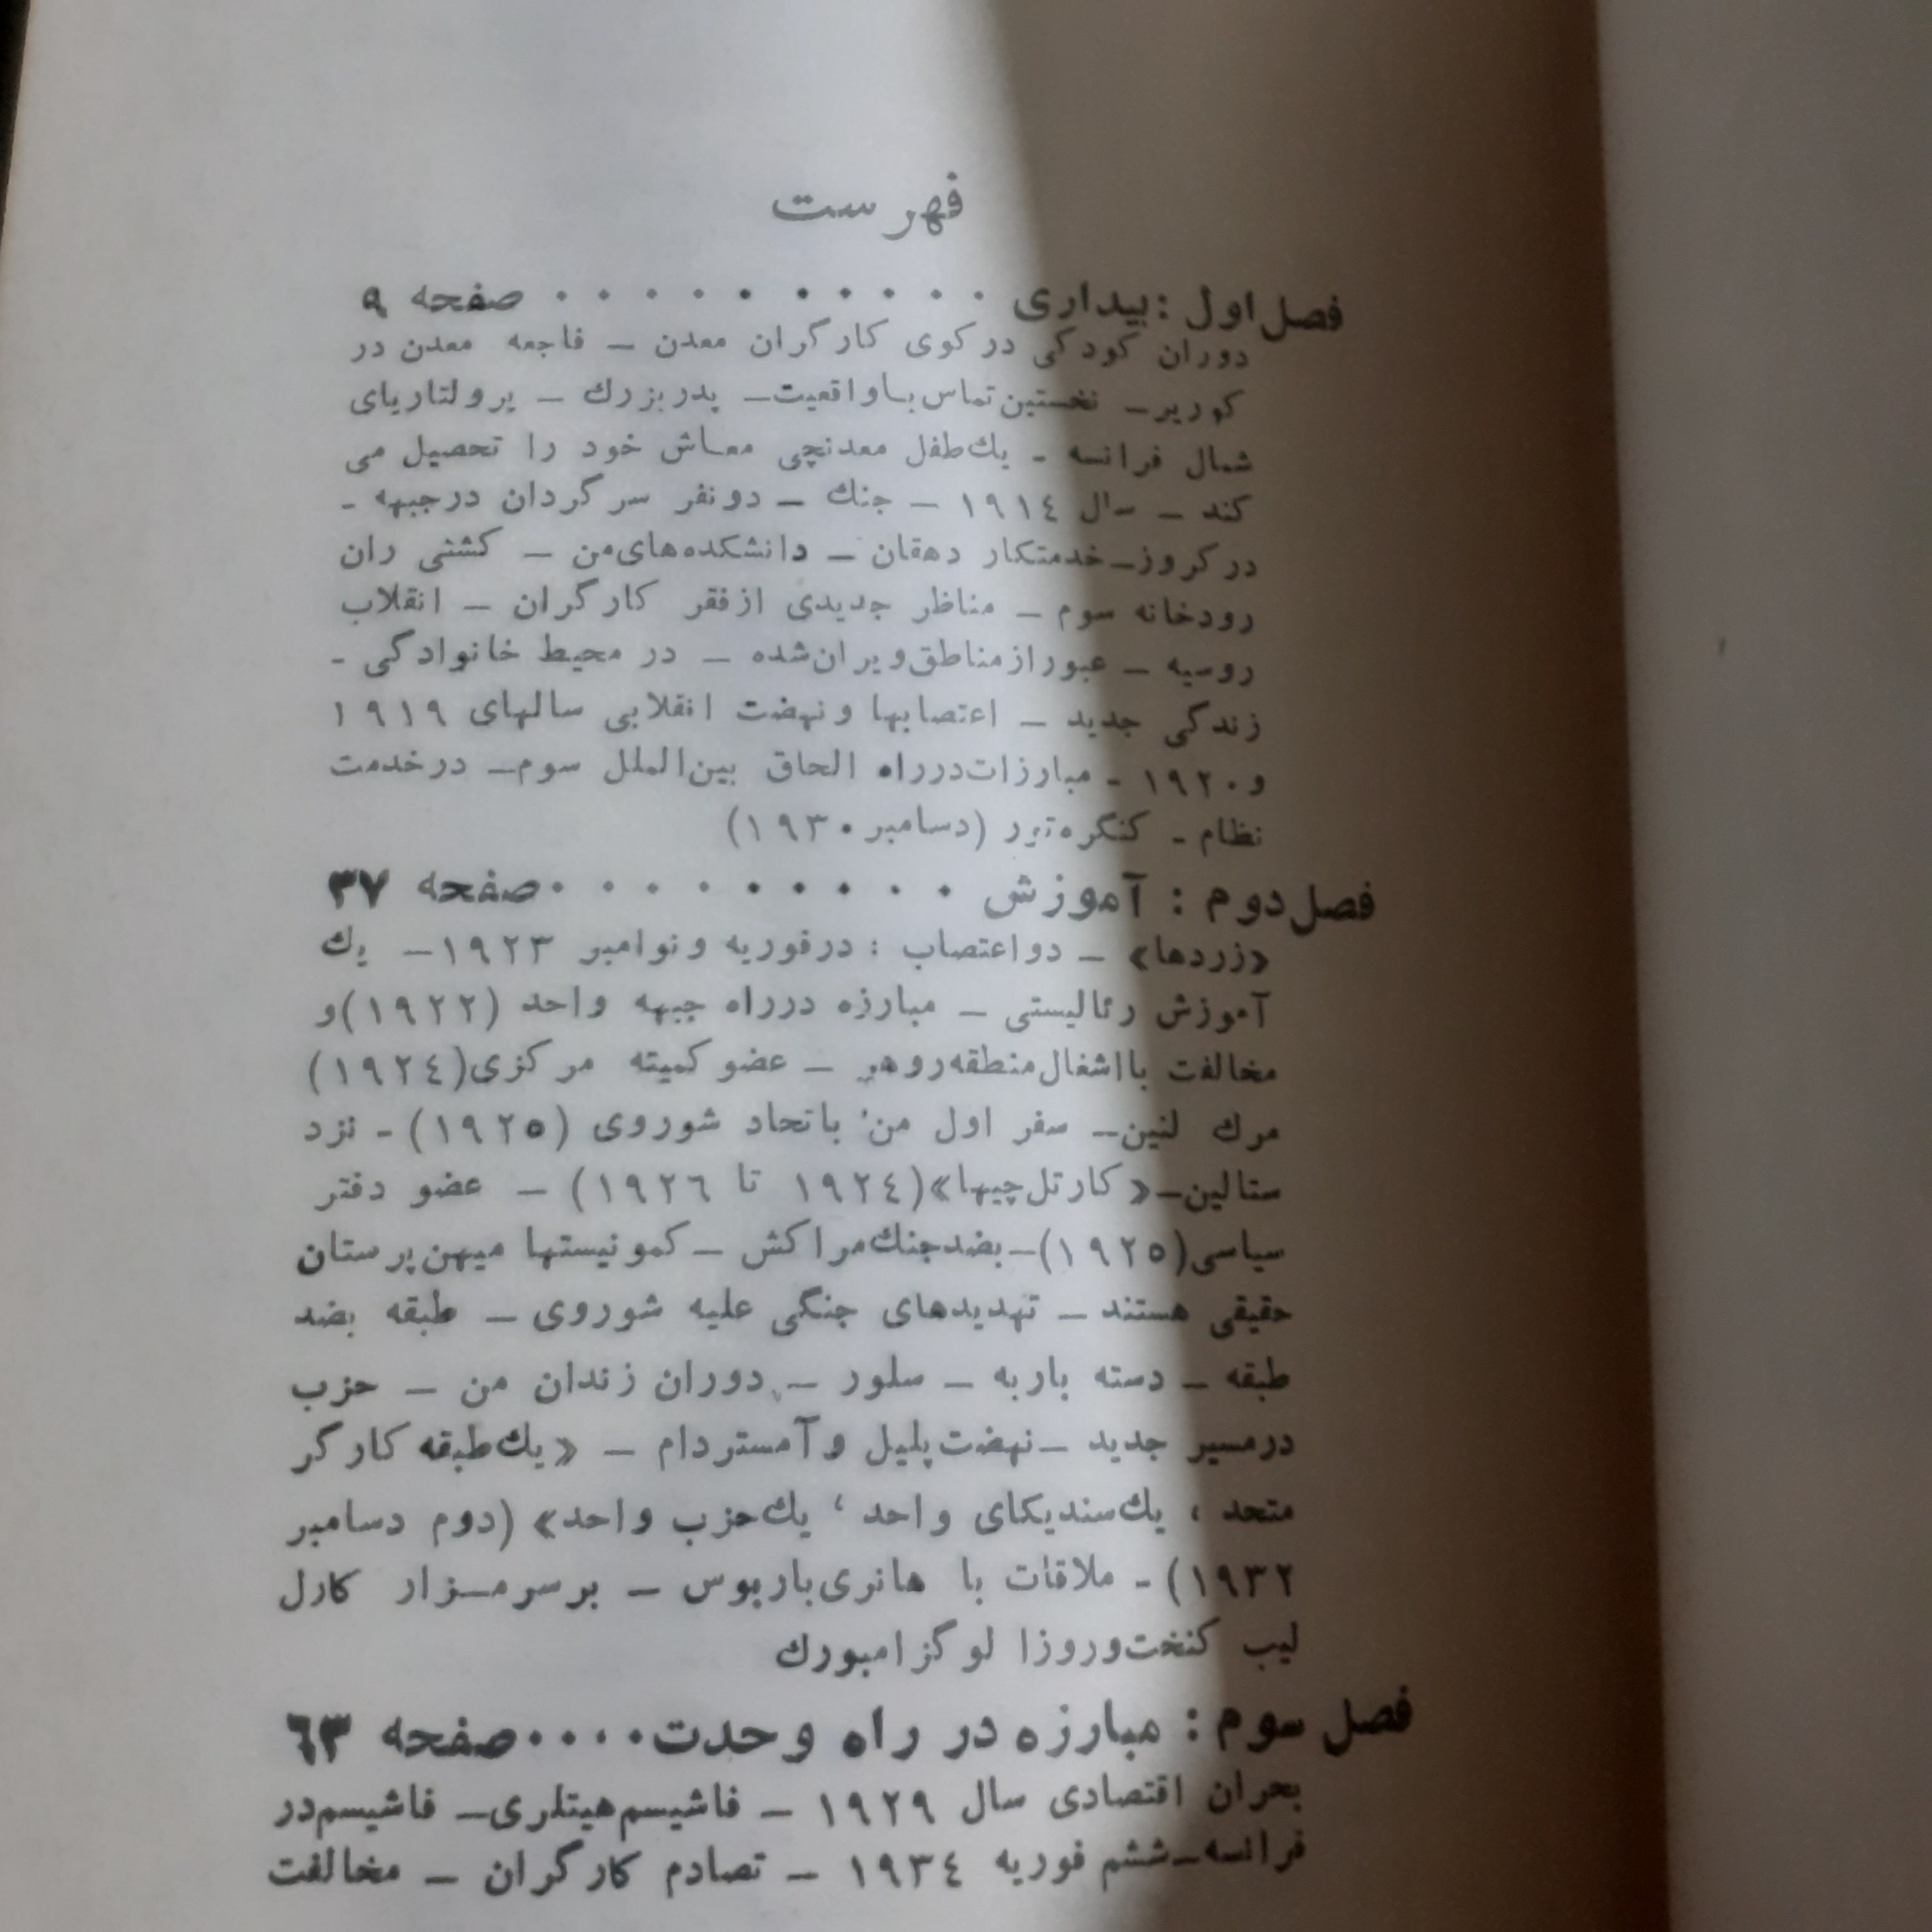 فهرست
فصل اول : بیداری . . . . . . . . . . صفحه ۹
دوران کودکی در کوی کارگران معدن – فاجعه معدن در
کوریر – نخستین تماس با واقعیت – پدر بزرك – پرولتاریای
شمال فرانسه - یك طفل معدنچی معاش خود را تحصیل می
کند – سال ۱۹۱٤ – جنك – دو نفر سرگردان در جبهه -
در کروز – خدمتکار دهقان – دانشکده های من – کشتی ران
رودخانه سوم – مناظر جدیدی از فقر کارگران – انقلاب
روسیه – عبور از مناطق ویران شده – در محیط خانوادگی -
زندگی جدید – اعتصابها و نهضت انقلابی سالهای ۱۹۱۹
و ۱۹۲۰ - مبارزات در راه الحاق بین الملل سوم – در خدمت
نظام - کنگره تور (دسامبر ۱۹۳۰)
فصل دوم : آموزش . . . . . . . . . صفحه ۳۷
«زردها» – دو اعتصاب : در فوریه و نوامبر ۱۹۲۳ – یك
آموزش رئالیستی – مبارزه در راه جبهه واحد (۱۹۲۲) و
مخالفت با اشغال منطقه روهر – عضو کمیته مرکزی (۱۹۲٤)
مرك لنین – سفر اول من باتحاد شوروی (۱۹۲٥) - نزد
ستالین – «کارتل چیها» (۱۹۲٤ تا ۱۹۲٦) – عضو دفتر
سیاسی (۱۹۲٥) – بضد جنك مراکش – کمونیستها میهن پرستان
حقیقی هستند – تهدیدهای جنگی علیه شوروی – طبقه بضد
طبقه – دسته باربه – سلور – دوران زندان من – حزب
در مسیر جدید – نهضت پلیل و آمستردام – «یك طبقه کارگر
متحد ، یك سندیکای واحد ، یك حزب واحد» (دوم دسامبر
۱۹۳۲) - ملاقات با هانری باربوس – بر سر مزار کارل
لیب کنخت و روزا لوگزامبورك
فصل سوم : مبارزه در راه وحدت . . . . صفحه ٦۳
بحران اقتصادی سال ۱۹۲۹ – فاشیسم هیتلری – فاشیسم در
فرانسه – ششم فوریه ۱۹۳٤ – تصادم کارگران – مخالفت